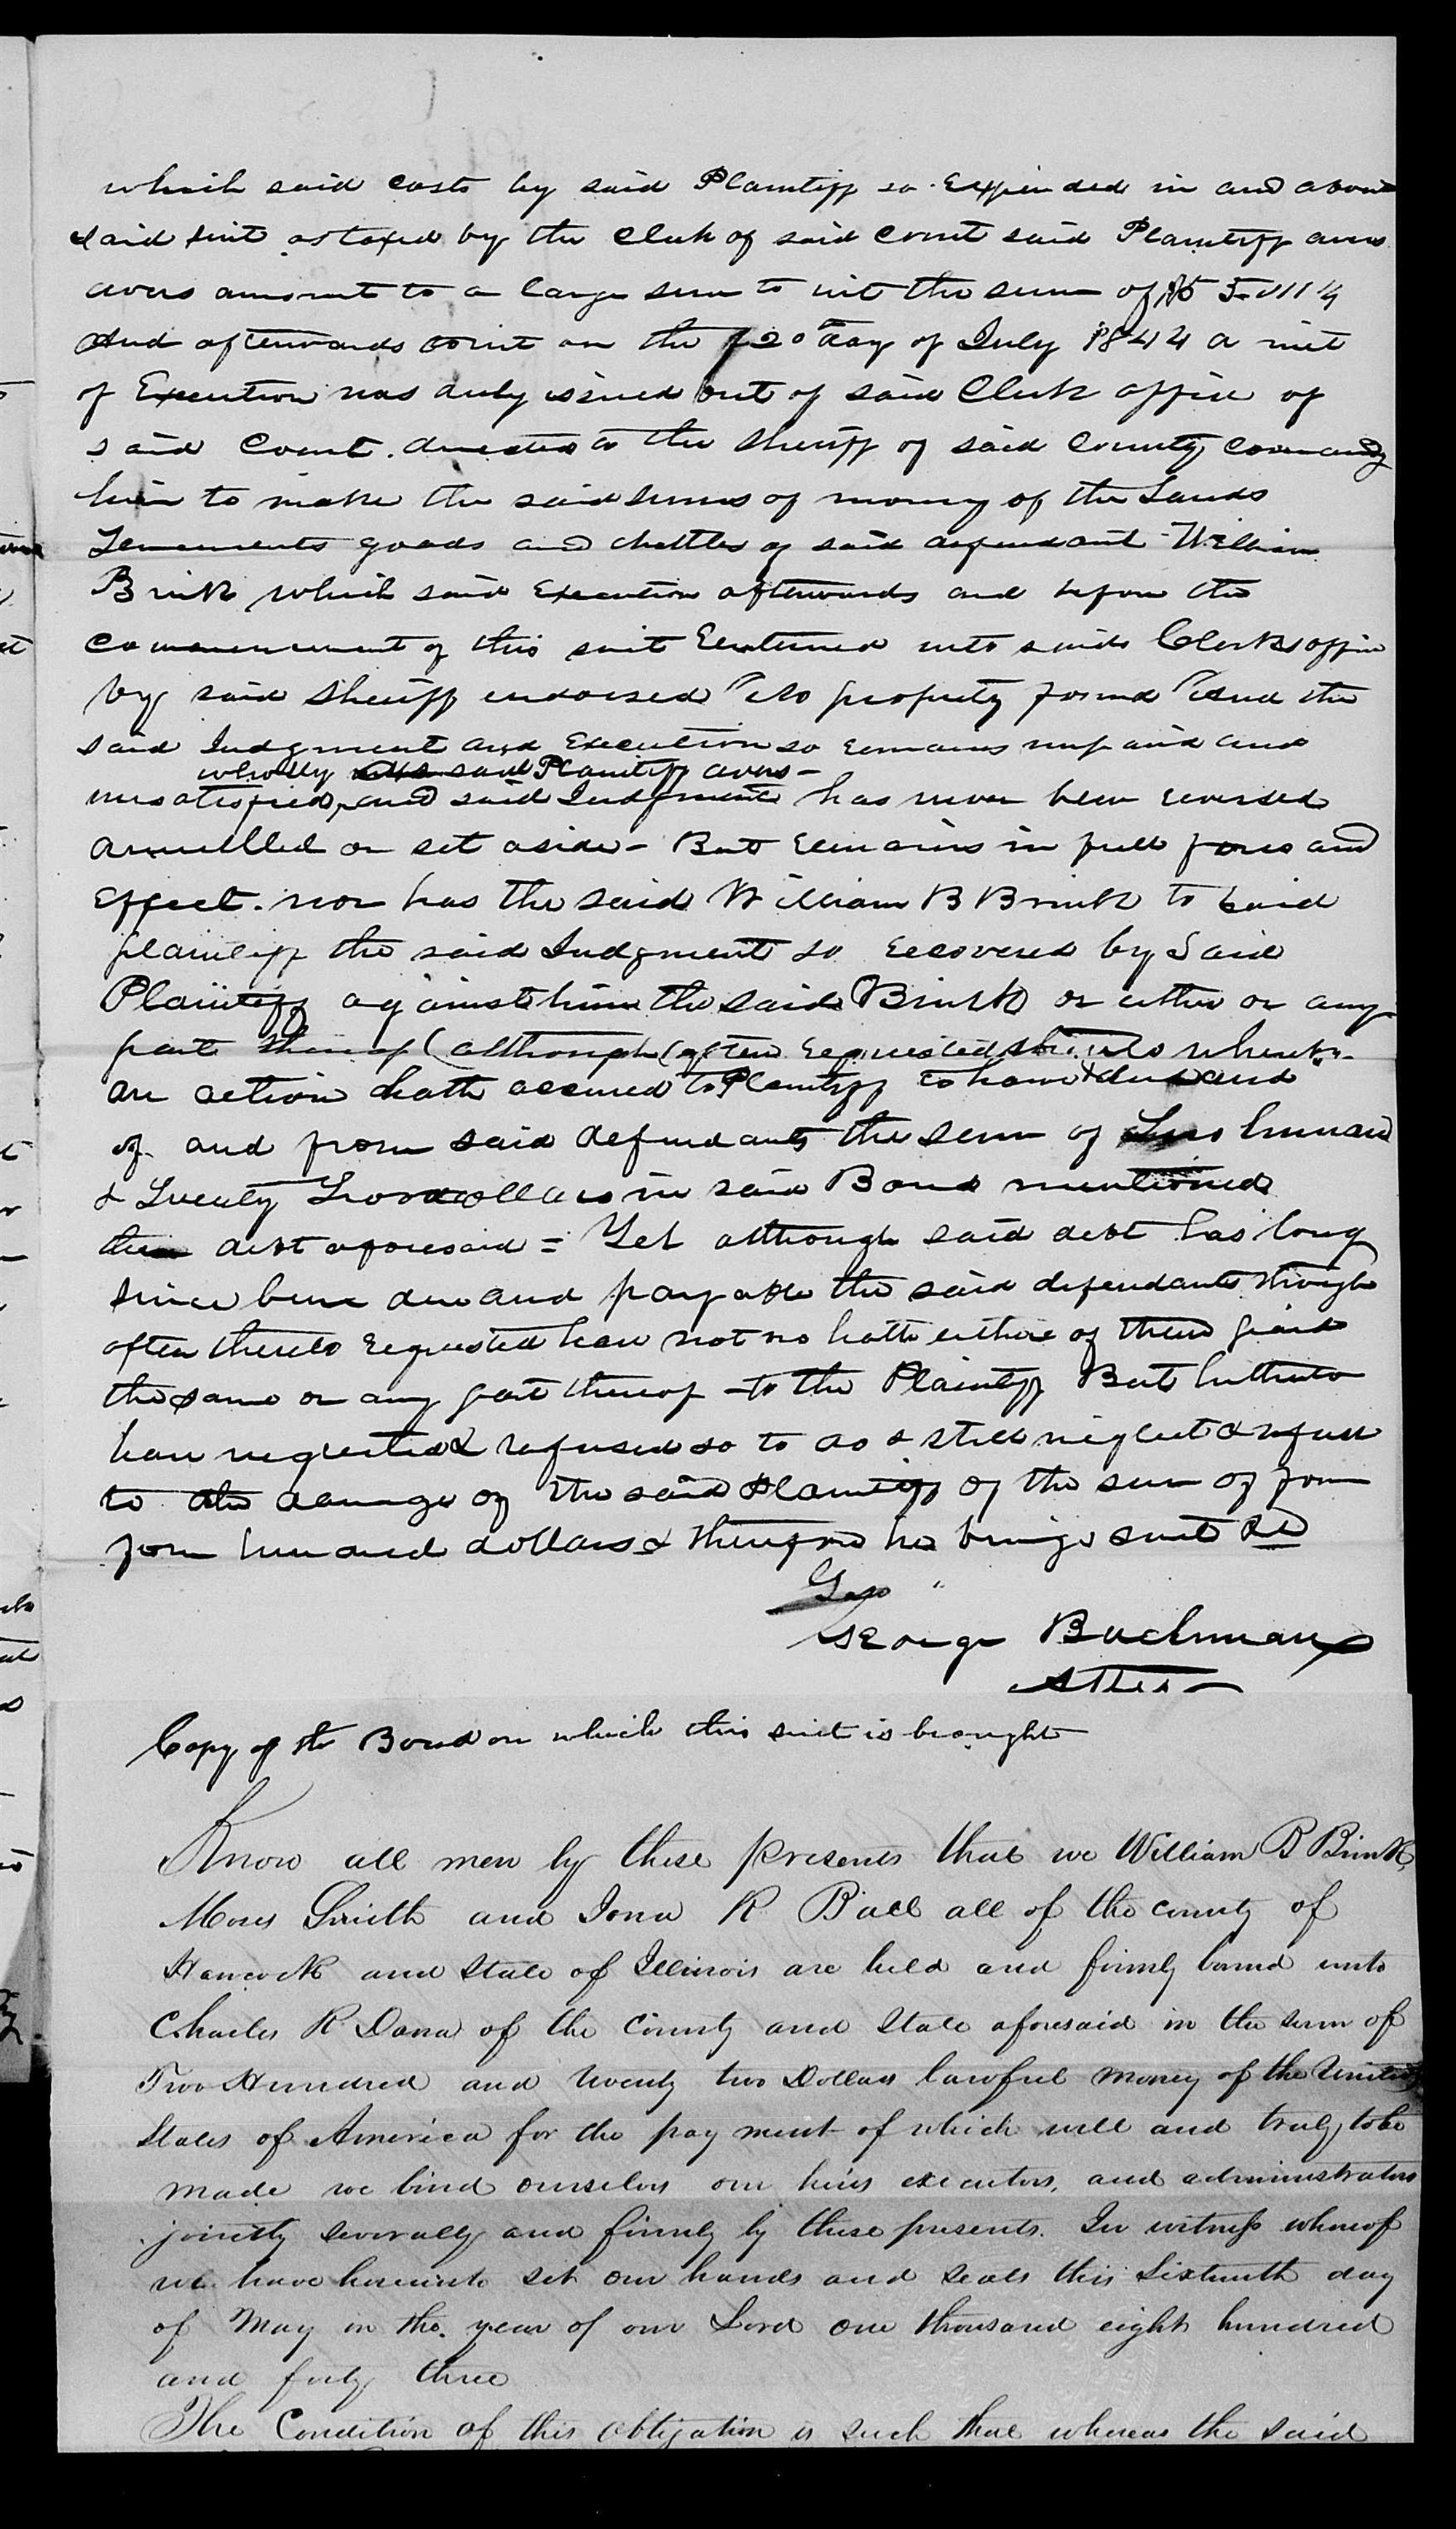 which said costs by said Plaintiff so Expended in and about
said suit as taxed by the Clerk of said Court said Plaintiff avers
avers amount to a large sum to wit the sum of
And afterwards to wit on the 20th day of July 1844 a writ
of Execution was duly issued out of said Clerk office of
said Court. directed to the Sheriff of said County commandg
him to make the said sums of money of the Lands
Tenements goods and chattles of said defendant William
Brink which said Execution afterwards and before the
commencement of this suit Returned into said Clerks office
by said Sheriff endorsed "No property found" And the
said Judgment and Execution so remains unpaid and
wholly said Plaintiff avers -
unsatisfied, and said Judgment has never been reversed
annulled or set aside - But Remains in full force and
Effect. nor has the said William B Brink to said
plaintiff the said Judgment so Recovered by Said
Plaintiff against him the said Brink or either or any
part thereof (although (often Requested whereby
an action hath accrued to Plaintiff to have & demand
of and from said defendants the sum of Two hundred
& Twenty Two dollars in said Bond mentioned
debt aforesaid = Yet although said debt has long
since been due and payable the said defendants though
often thereto Requested have not no hath either of them paid
the same or any part thereof to the Plaintiff But hitherto
have neglected & refused so to do & still neglect & refuse
to the damage of the said Plaintiff of the sum of four
four hundred dollars & therefore he brings suit &c
Geo
George Bachman
Atty
Copy of the Bond on which this suit is brought
Know all men by these presents that we William B Brink,
Moses Smith and Iona R Ball all of the county of
Hancock and State of Illinois are held and firmly bound unto
Charles R Dana of the County and State aforesaid in the sum of
Two Hundred and twenty two Dollars lawful money of the United
States of America for the pay ment of which well and truly to be
made we bind ourselves our heirs executors, and administrators
jointly severally and firmly by these presents. In witness whereof
we have hereunto set our hands and seals this Sixteenth day
of May in the year of our Lord one thousand eight hundred
and forty three
The Condition of this obligation is such that whereas the said